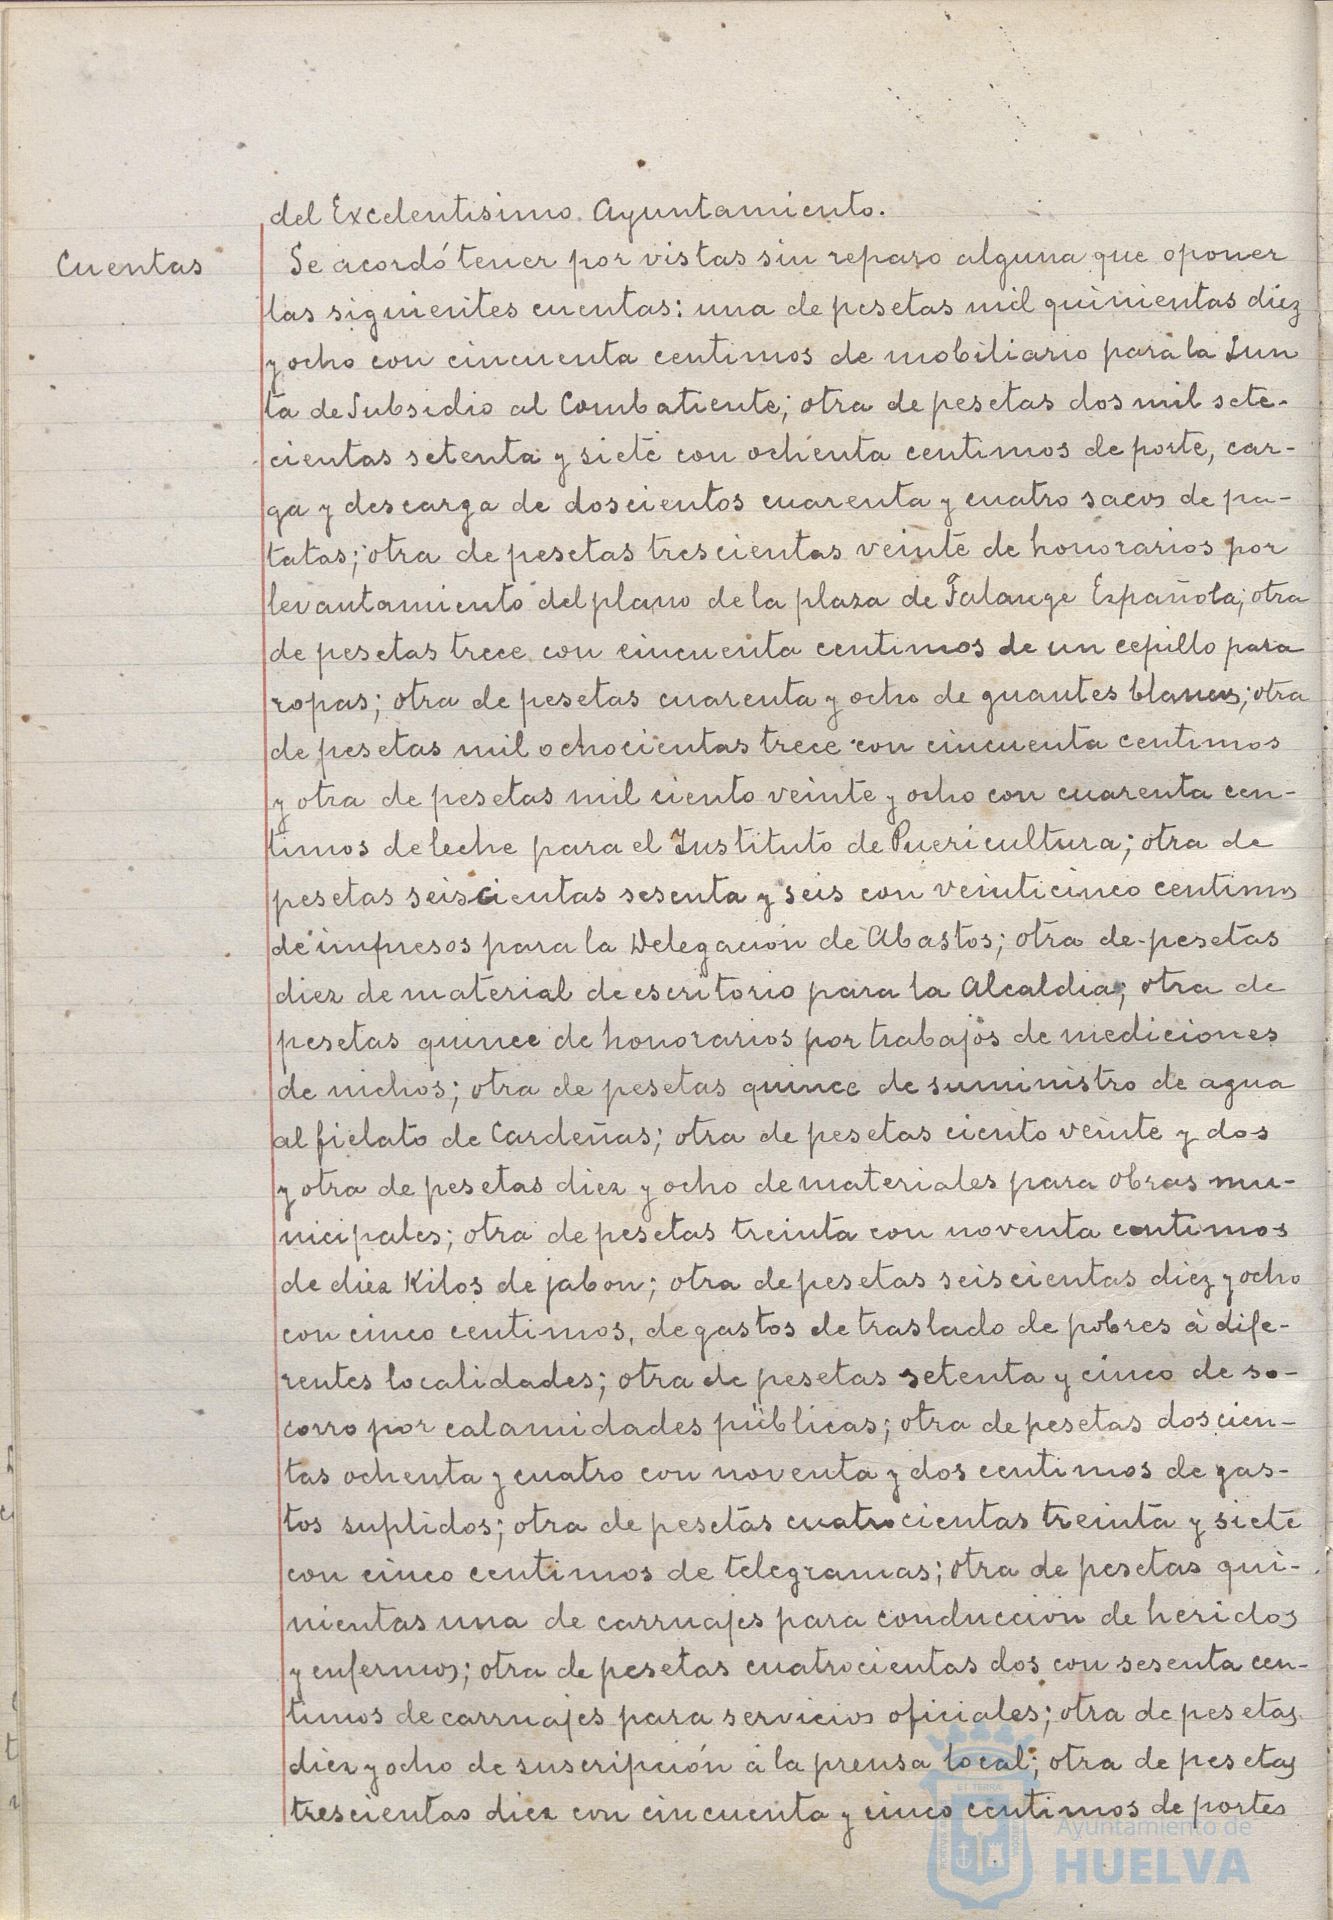 del Excelentisimo Ayuntamiento.
Cuentas
Se acordó tener por vistas sin reparo alguna que oponer
las siguientes cuentas: una de pesetas mil quinientas diez
y ocho con cincuenta centimos de mobiliario para la Jun
ta de Subsidio al Combatiente; otra de pesetas dos mil sete-
cientas setenta y siete con ochenta centimos de porte, car-
ga y descarga de doscientos cuarenta y cuatro sacos de pa-
tatas; otra de pesetas trescientas veinte de honorarios por
levantamiento del plano de la plaza de Falange Española; otra
de pesetas trece con cincuenta centimos de un cepillo para
ropas; otra de pesetas cuarenta y ocho de guantes blancos; otra
de pesetas mil ochocientas trece con cincuenta centimos
y otra de pesetas mil ciento veinte y ocho con cuarenta cen-
timos de leche para el Instituto de Puericultura; otra de
pesetas seiscientas sesenta y seis con veinticinco centimos
de impresos para la Delegación de Abastos; otra de pesetas
diez de material de escritorio para la Alcaldia; otra de
pesetas quince de honorarios por trabajos de mediciones
de nichos; otra de pesetas quince de suministro de agua
al fielato de Cardeñas; otra de pesetas ciento veinte y dos
y otra de pesetas diez y ocho de materiales para obras mu-
nicipales; otra de pesetas treinta con noventa centimos
de diez Kilos de jabon; otra de pesetas seiscientas diez y ocho
con cinco centimos, de gastos de traslado de pobres à dife-
rentes localidades; otra de pesetas setenta y cinco de so-
corro por calamidades públicas; otra de pesetas doscien-
tas ochenta y cuatro con noventa y dos centimos de gas-
tos suplidos; otra de pesetas cuatrocientas treinta y siete
con cinco centimos de telegramas; otra de pesetas qui-
nientas una de carruajes para conduccion de heridos
y enfermos; otra de pesetas cuatrocientas dos con sesenta cen-
timos de carruajes para servicios oficiales; otra de pesetas
diez y ocho de suscripción a la prensa local; otra de pesetas
trescientas diez con cincuenta y cinco centimos de portes
Ayuntamiento de
HUELVA